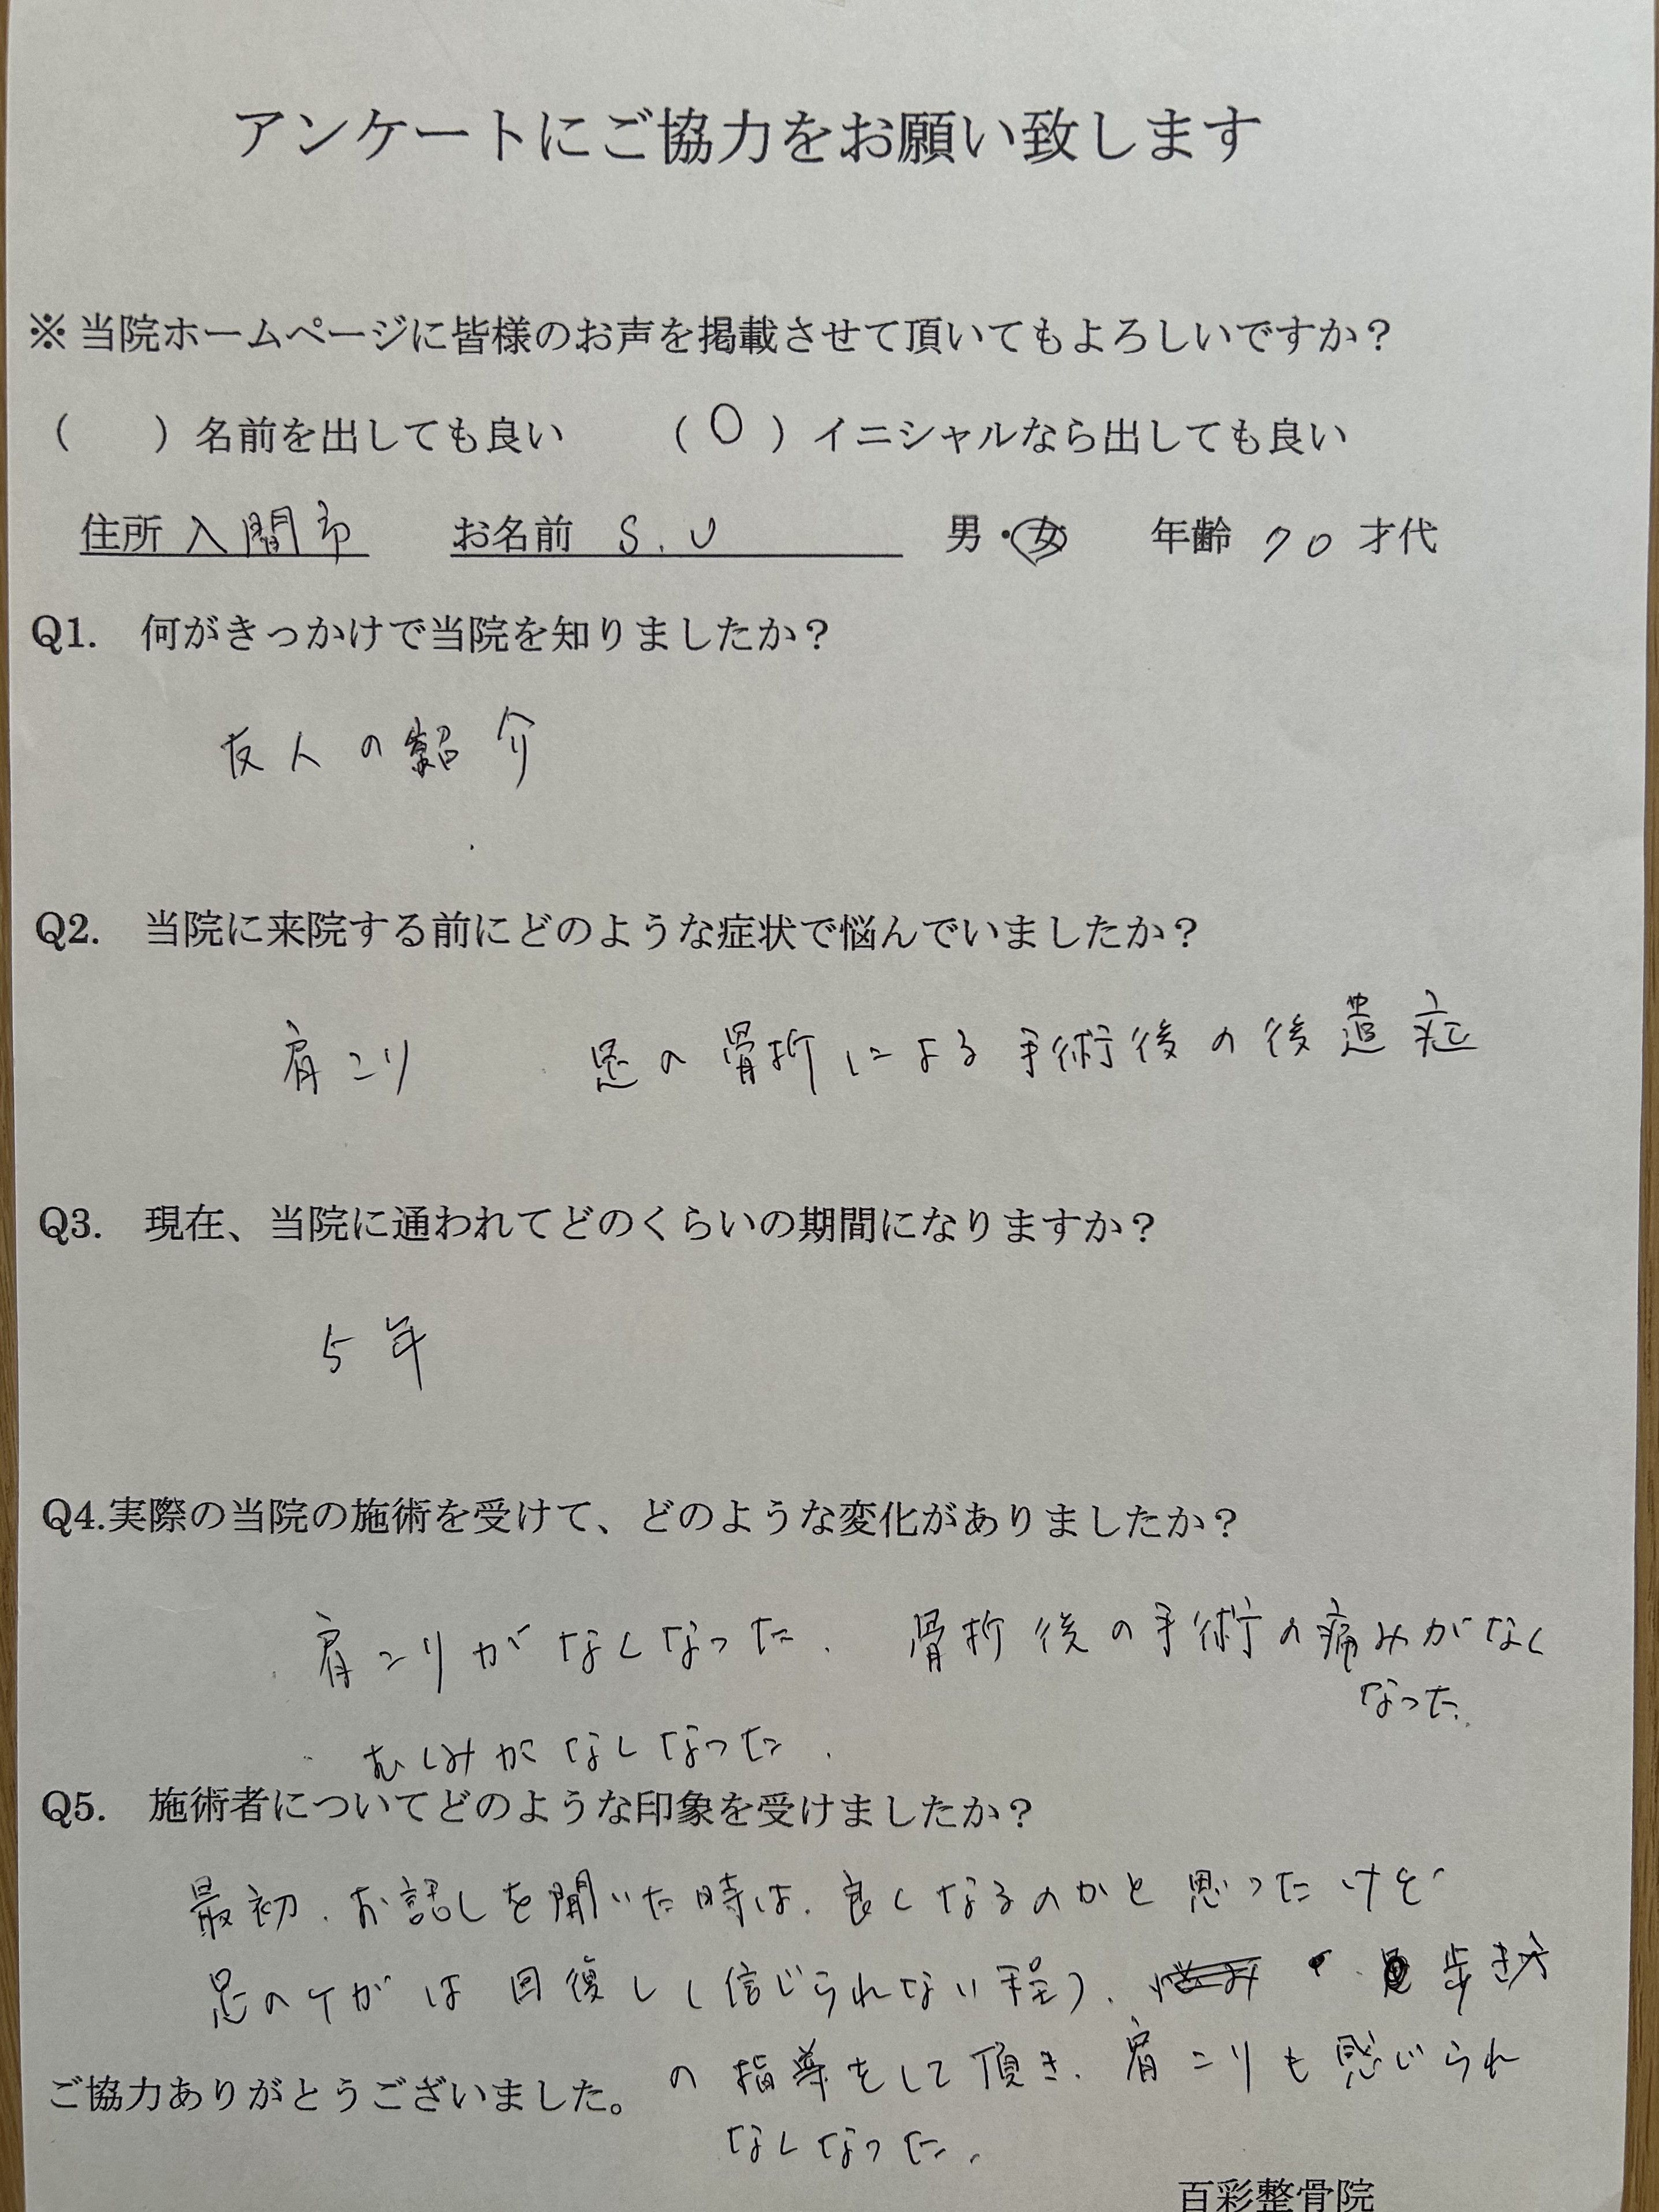 アンケートにご協力をお願い致します
※当院ホームページに皆様のお声を掲載させて頂いてもよろしいですか？
（　　）名前を出しても良い　　（○）イニシャルなら出しても良い
住所 入間市　お名前 S.U　男・女　年齢 70 才代
Q1.　何がきっかけで当院を知りましたか？
友人の紹介
Q2.　当院に来院する前にどのような症状で悩んでいましたか？
肩こり　足の骨折による手術後の後遺症
Q3.　現在、当院に通われてどのくらいの期間になりますか？
5年
Q4.実際の当院の施術を受けて、どのような変化がありましたか？
肩こりがなくなった．　骨折後の手術の痛みがなく
なった．
むくみがなくなった．
Q5.　施術者についてどのような印象を受けましたか？
最初．お話しを聞いた時は．良くなるのかと思ったけど
足のケガは回復し（信じられない程）．歩き方
の指導をして頂き．肩こりも感じられ
ご協力ありがとうございました。
なくなった．
百彩整骨院